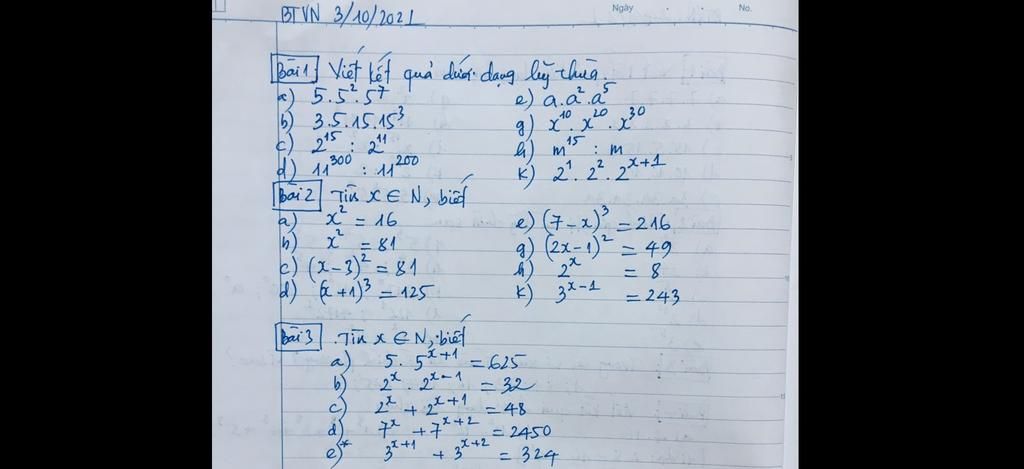 Ngày . . No.
BTVN 3/10/2021
Bài 1 Viết kết quả dưới dạng lũy thừa.
a) 5.5².5⁷
b) 3.5.15.15³
c) 2¹⁵ : 2¹¹
d) 11³⁰⁰ : 11²⁰⁰
e) a.a².a⁵
g) x¹⁰.x²⁰.x³⁰
h) m¹⁵ : m
k) 2¹.2².2ˣ⁺¹
Bài 2 Tìm x ∈ N, biết
a) x² = 16
b) x² = 81
c) (x-3)² = 81
d) (x+1)³ = 125
e) (7-x)³ = 216
g) (2x-1)² = 49
h) 2ˣ = 8
k) 3ˣ⁻¹ = 243
Bài 3 .Tìm x ∈ N, biết
a) 5.5ˣ⁺¹ = 625
b) 2ˣ.2ˣ⁻¹ = 32
c) 2ˣ + 2ˣ⁺¹ = 48
d) 7ˣ + 7ˣ⁺² = 2450
e)* 3ˣ⁺¹ + 3ˣ⁺² = 324